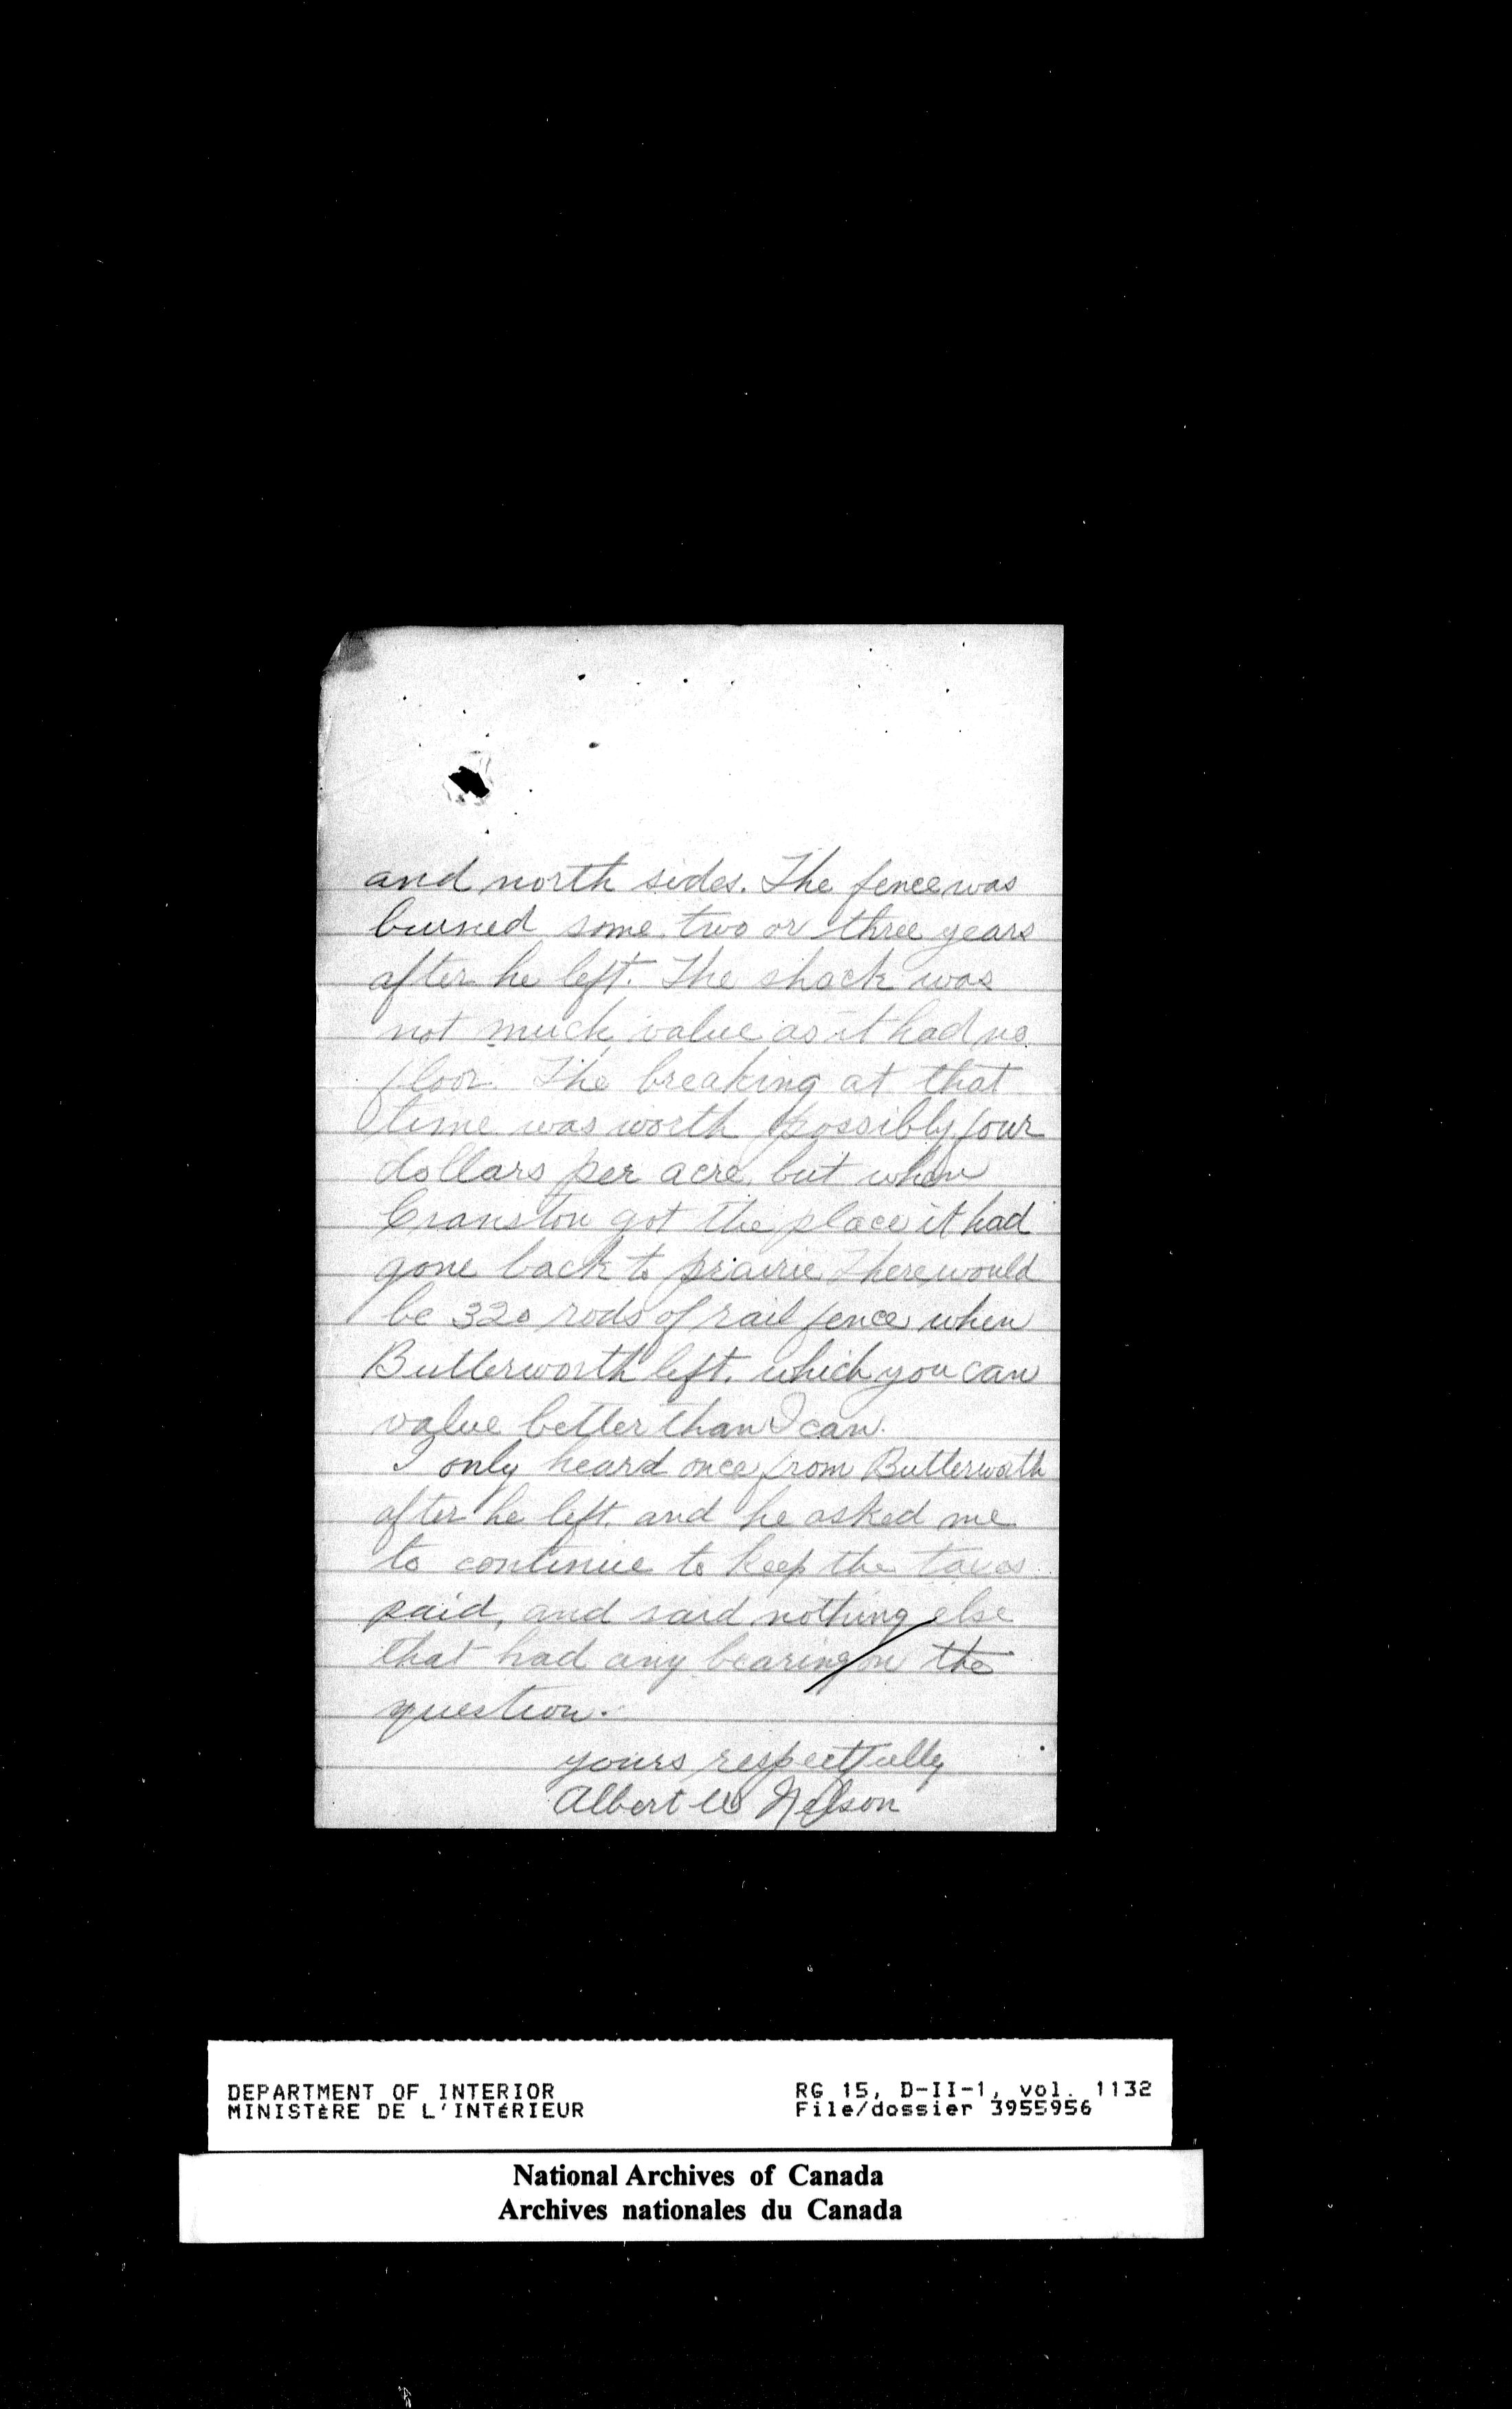 and north sides. The fence was
burned some two or three years
after he left. The shack was
not much value as it had no
floor. The breaking at that
time was worth possibly four
dollars per acre but when
Cranston got the place it had
gone back to prairie There would
be 320 rods of rail fence when
Butterworth left. which you can
value better than I can.
I only heard once from Butterworth
after he left. and he asked me
to continue to keep the taxes
paid, and said nothing else
that had any bearing on the
question.
yours respectfully
Albert W Nelson
DEPARTMENT OF INTERIOR RG 15, D-II-1, vol. 1132
MINISTÈRE DE L'INTÉRIEUR File/dossier 3955956
National Archives of Canada
Archives nationales du Canada